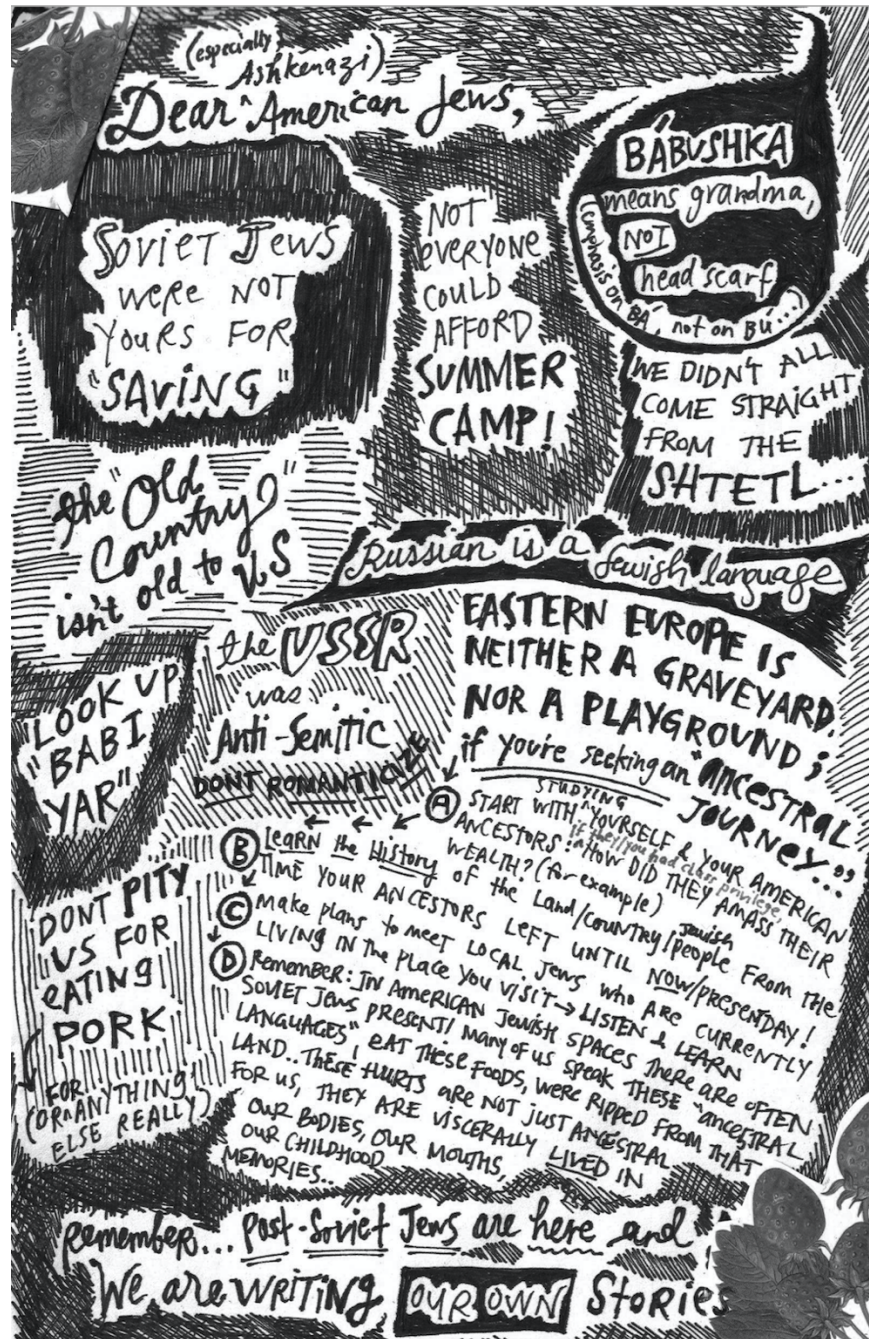 (especially
Ashkenazi)
Dear ^ American Jews,
SOVIET JEWS
WERE NOT
YOURS FOR
"SAVING"
NOT
EVERYONE
COULD
AFFORD
SUMMER
CAMP!
BÁBUSHKA
means grandma,
NOT
head scarf
(emphasis on BÁ, not on BÚ...)
WE DIDN'T ALL
COME STRAIGHT
FROM THE
SHTETL...
the "Old
Country"
isn't old to US
Russian is a Jewish language
LOOK UP
"BABI
YAR"
the USSR
was
Anti-Semitic
DONT ROMANTICIZE
EASTERN EUROPE IS
NEITHER A GRAVEYARD,
NOR A PLAYGROUND;
if you're seeking an "ANCESTRAL
JOURNEY..."
STUDYING
A START WITH ^ YOURSELF & YOUR AMERICAN
ANCESTORS: if they/you had class privilege, HOW DID THEY AMASS THEIR
WEALTH? (for example)
B LEARN the History of the Land/country/Jewish people FROM the
TIME YOUR ANCESTORS LEFT UNTIL NOW/PRESENTDAY!
C Make plans to meet LOCAL Jews who are CURRENTLY
LIVING IN the PLACE YOU VISIT → LISTEN & LEARN
D Remember: IN AMERICAN JEWISH SPACES there are OFTEN
SOVIET JEWS PRESENT! Many of us SPEAK THESE "ancestral
LANGUAGES", EAT THESE FOODS, WERE RIPPED FROM THAT
LAND.. THESE HURTS are NOT JUST ANCESTRAL
FOR US, THEY ARE VISCERALLY LIVED IN
OUR BODIES, OUR MOUTHS,
OUR CHILDHOOD
MEMORIES..
DONT PITY
US FOR
EATING
PORK
FOR
(OR ^ ANYTHING
ELSE REALLY)
remember... Post-Soviet Jews are here and
We are WRITING OUR OWN Stories